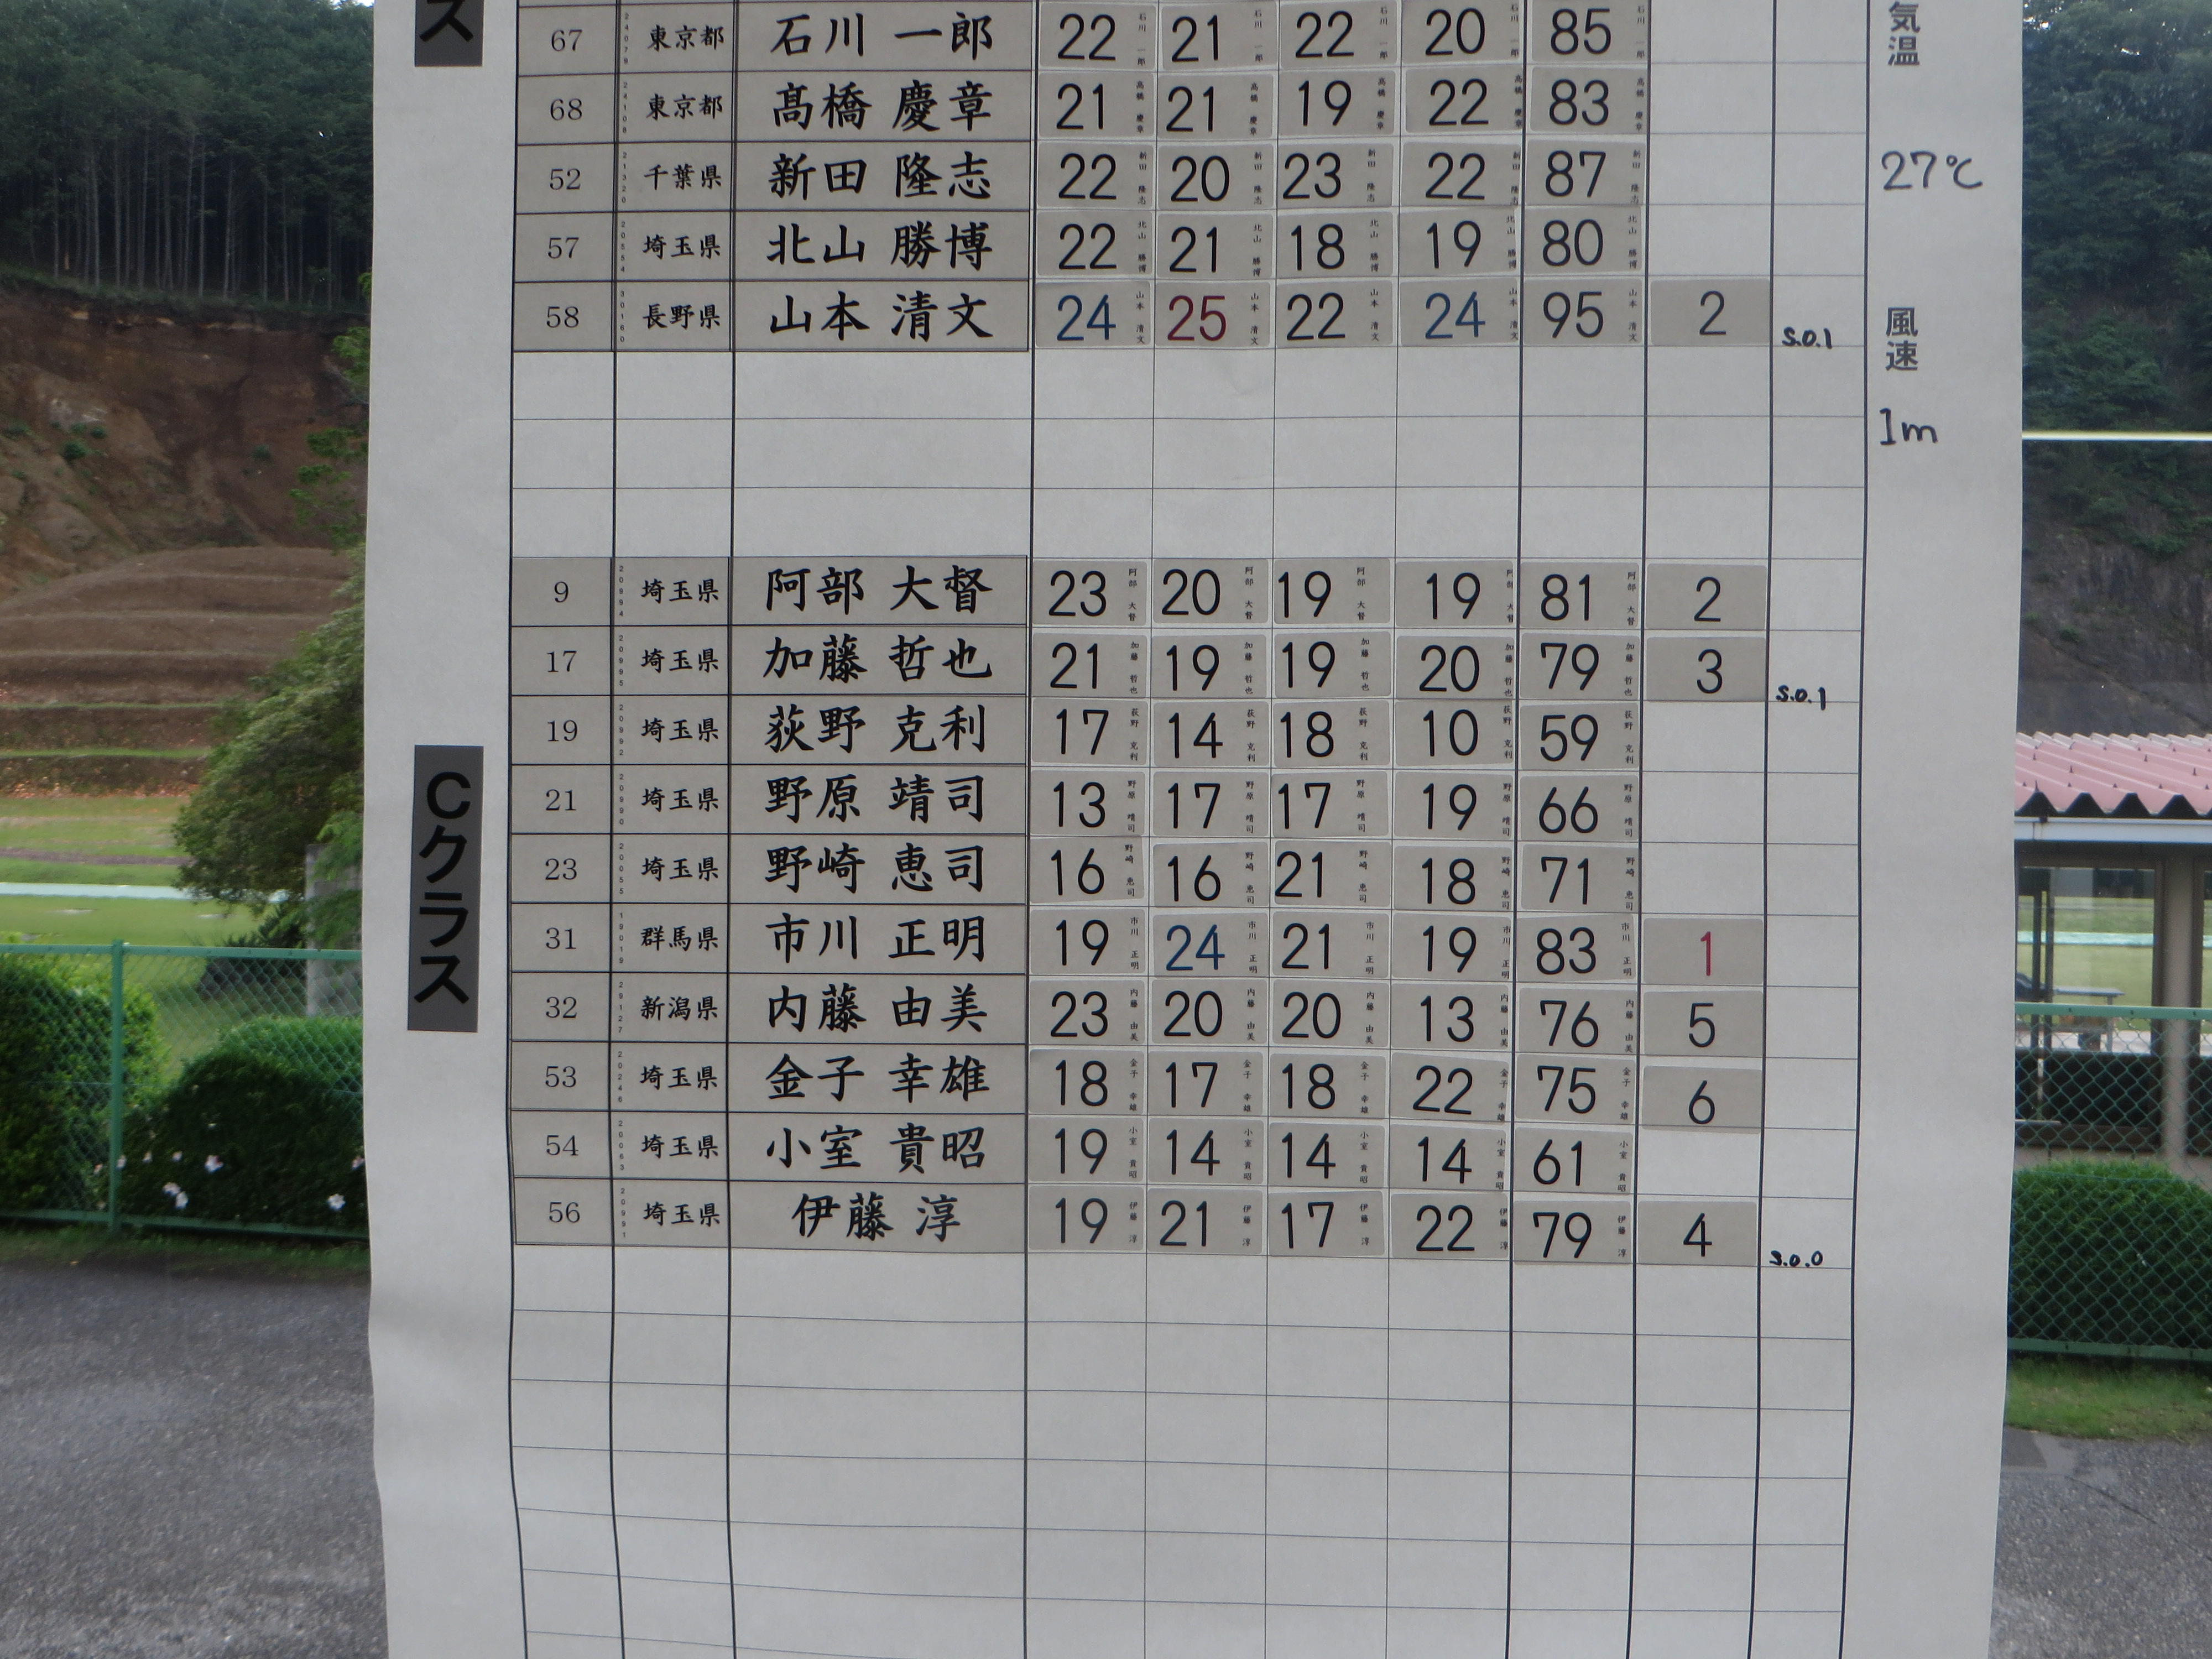 ス
67 東京都 石川 一郎 22 21 22 20 85
68 東京都 髙橋 慶章 21 21 19 22 83
52 千葉県 新田 隆志 22 20 23 22 87
57 埼玉県 北山 勝博 22 21 18 19 80
58 長野県 山本 清文 24 25 22 24 95 2 S.O.1
Cクラス
9 埼玉県 阿部 大督 23 20 19 19 81 2
17 埼玉県 加藤 哲也 21 19 19 20 79 3 S.O.1
19 埼玉県 荻野 克利 17 14 18 10 59
21 埼玉県 野原 靖司 13 17 17 19 66
23 埼玉県 野崎 恵司 16 16 21 18 71
31 群馬県 市川 正明 19 24 21 19 83 1
32 新潟県 内藤 由美 23 20 20 13 76 5
53 埼玉県 金子 幸雄 18 17 18 22 75 6
54 埼玉県 小室 貴昭 19 14 14 14 61
56 埼玉県 伊藤 淳 19 21 17 22 79 4 S.O.0
気温
27℃
風速
1m